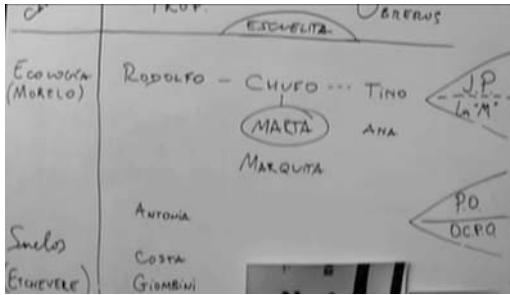 PROF.
ESCUELITA
OBREROS
ECOLOGÍA
(MORELO)
RODOLFO - CHUFO ... TINO
J.P.
La "M"
MARTA
ANA
MARQUITA
ANTONIA
P.O.
O.C.P.O.
Suelos
(ETCHEVERE)
COSTA
GIOMBINI